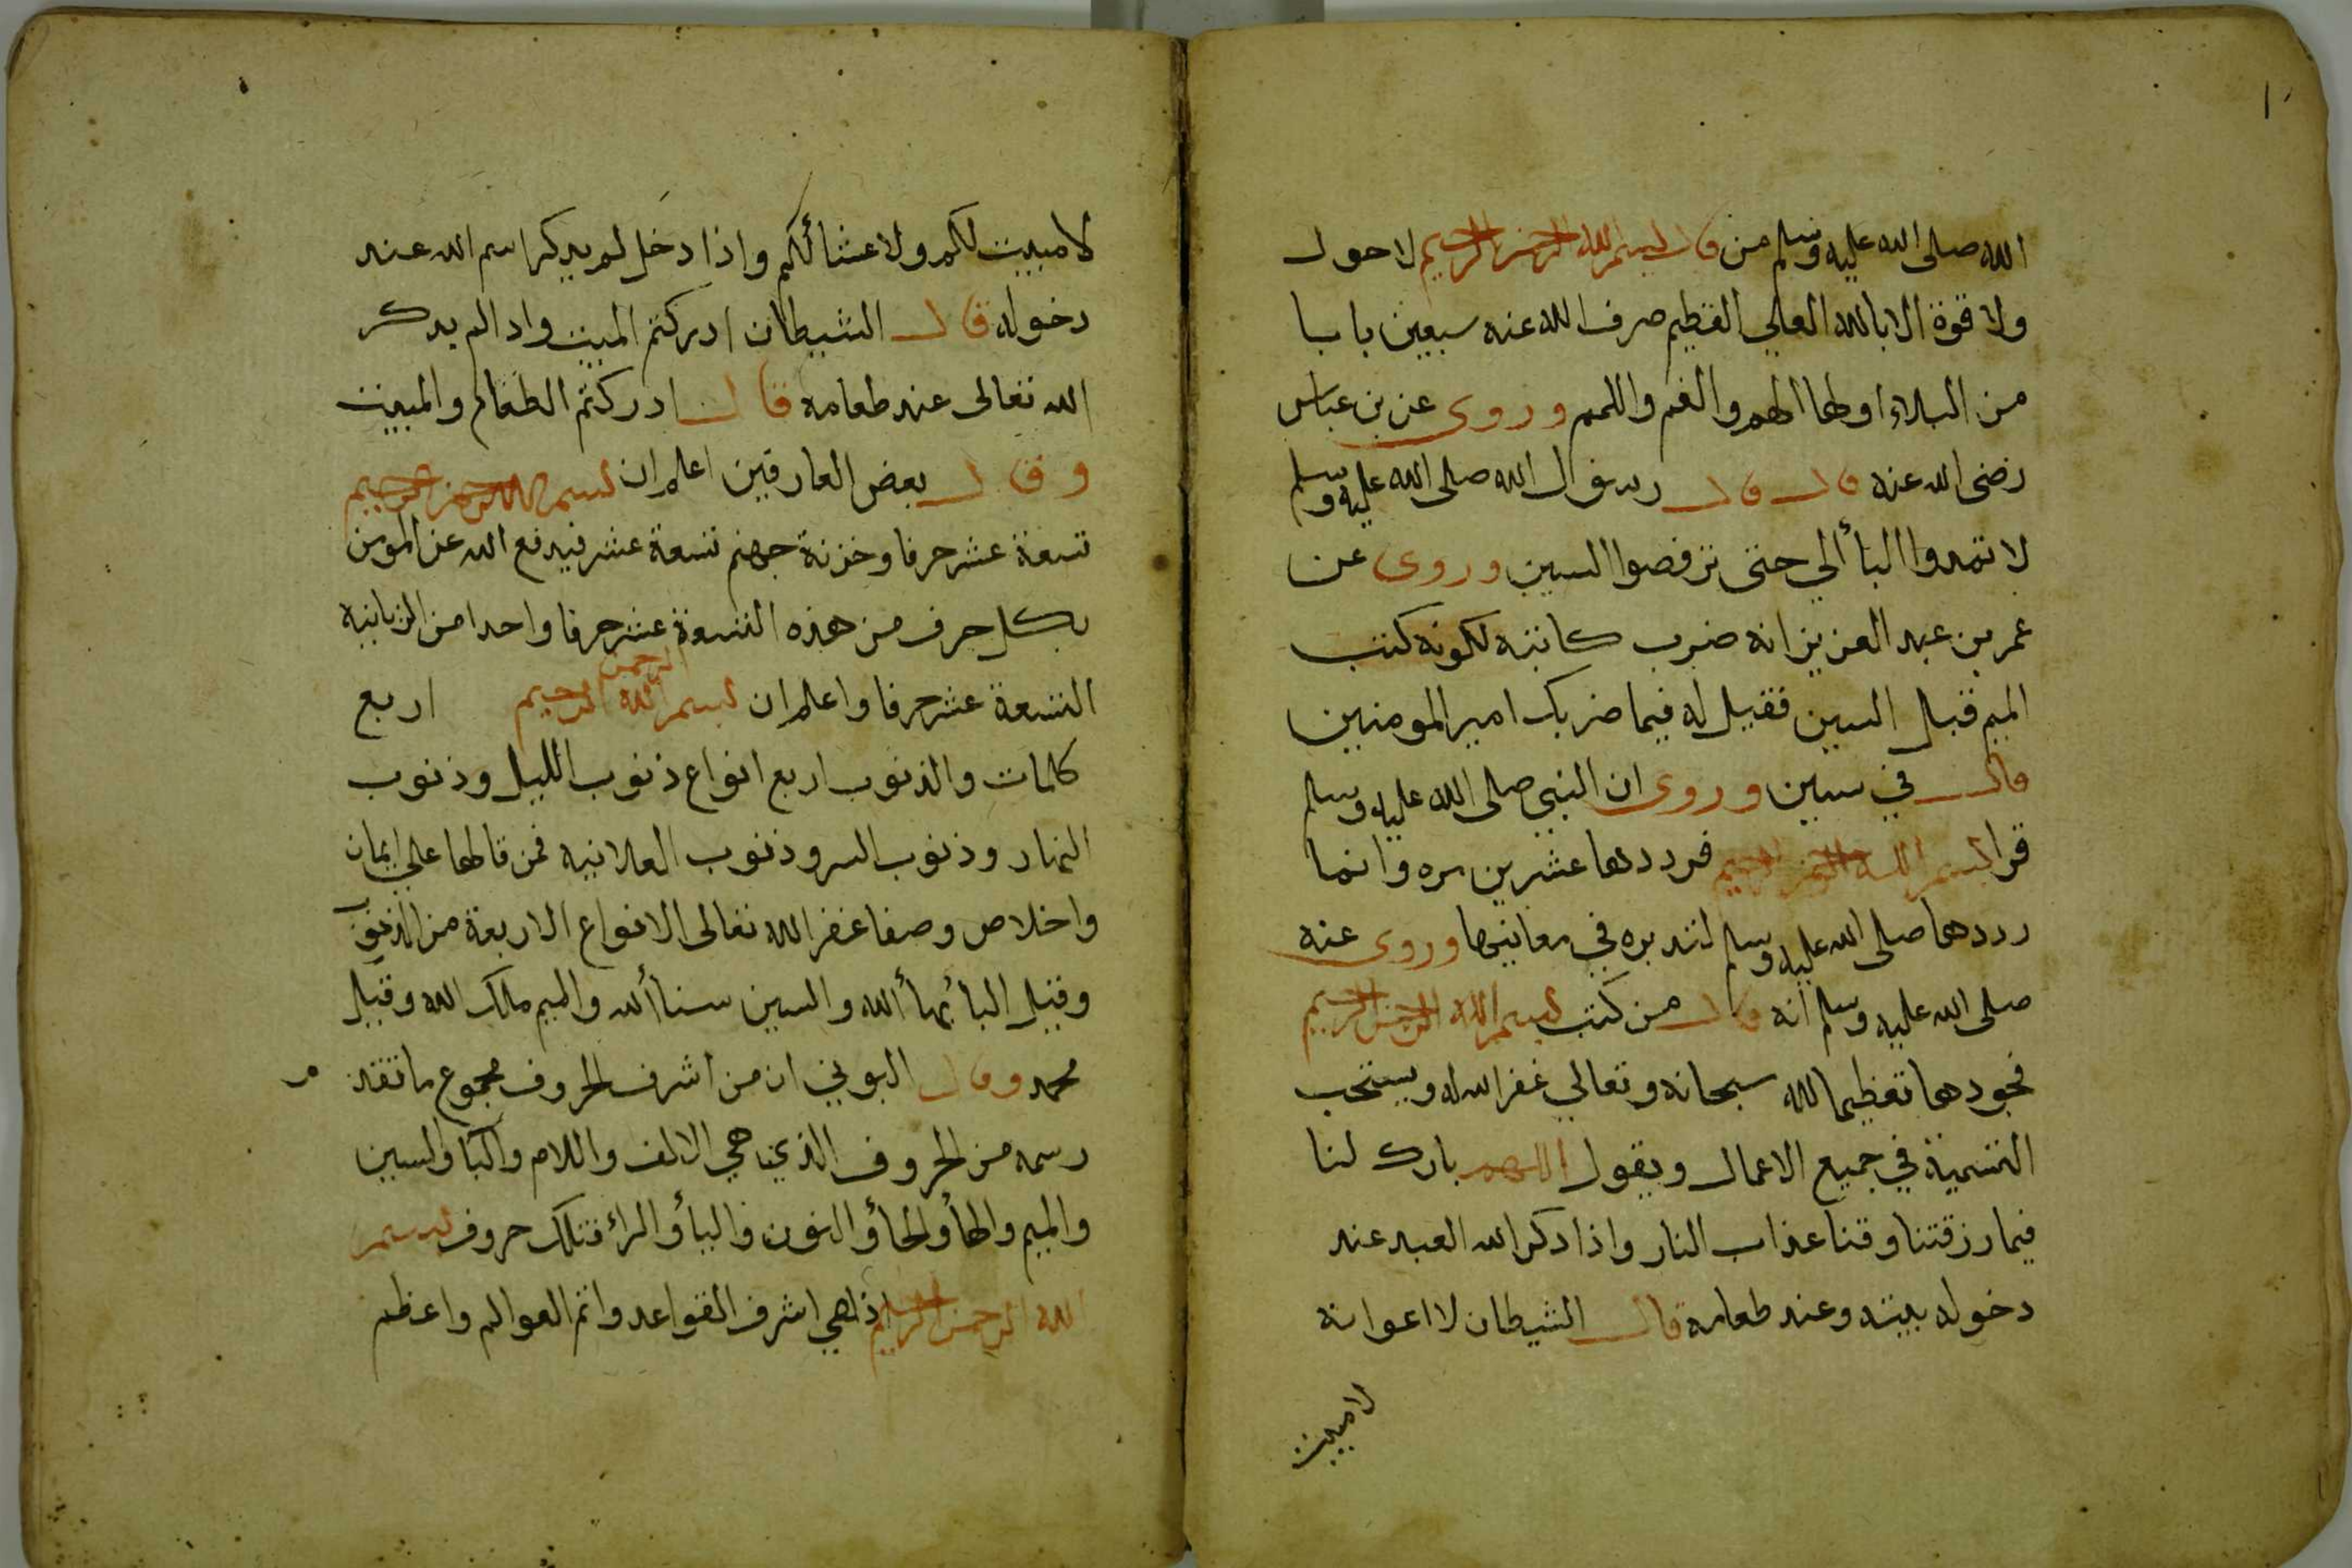 الله صلى الله عليه وسلم من قال بسم الله الرحمن الرحيم لا حول
ولا قوة الا بالله العلي العظيم صرف الله عنه سبعين بابا
من البلاء اولها الهم والغم واللمم وروى عن بن عباس
رضى الله عنه قال قال رسول الله صلى الله عليه وسلم
لا تمدوا البأ الي حتى ترفصوا السين وروى عن
عمر بن عبد العزيز انه ضرب كاتبه لكونه كتب
الميم قبل السين فقيل له فيما ضربك امير المومنين
قال في سين وروى ان النبي صلى الله عليه وسلم
قرا بسم الله الرحمن الرحيم فرددها عشرين مره وانما
رددها صلى الله عليه وسلم لتدبره في معانيها وروى عنه
صلى الله عليه وسلم انه قال من كتب بسم الله الرحمن الرحيم
فجودها تعظيما لله سبحانه وتعالي غفر الله له ويستحب
التسمية في جميع الاعمال ويقول اللهم بارك لنا
فيما رزقتنا وقنا عذاب النار واذا دكر الله العبد عند
دخوله بيته وعند طعامه قال الشيطان لاعوانه
لا مبيت
لا مبيت لكم ولا عشا ألكم واذا دخل لم يدكر اسم الله عند
دخوله قال الشيطان ادركتم المبيت واد الم يدكر
الله تعالى عند طعامه قال ادركتم الطعام والمبيت
وقال بعض العارفين اعلم ان بسم الله الرحمن الرحيم
تسعة عشر حرفا وخزنة جهنم تسعة عشر فيدفع الله عن المومن
بكل حرف من هذه التسعة عشر حرفا واحدا من الزبانية
التسعة عشر حرفا واعلم ان بسم الله الرحمن الرحيم اربع
كلمات والذنوب اربع انواع ذنوب الليل وذنوب
النهار وذنوب السر وذنوب العلانيه فمن قالها علي ايمان
واخلاص وصفا غفر الله تعالى الانواع الاربعة من الذنوب
وقيل البا بهأ الله والسين سناأ الله والميم ملك الله وقيل
محمد وقال البوني ان من اشرف الحروف مجموع ما تقد م
رسمه من الحروف الذي هي الالف واللام والبا والسين
والميم والهأ والحأ والنون واليأ والرأ فتلك حروف بسم
الله الرحمن الرحيم اذ هي اشرف القواعد واتم العوالم واعظم